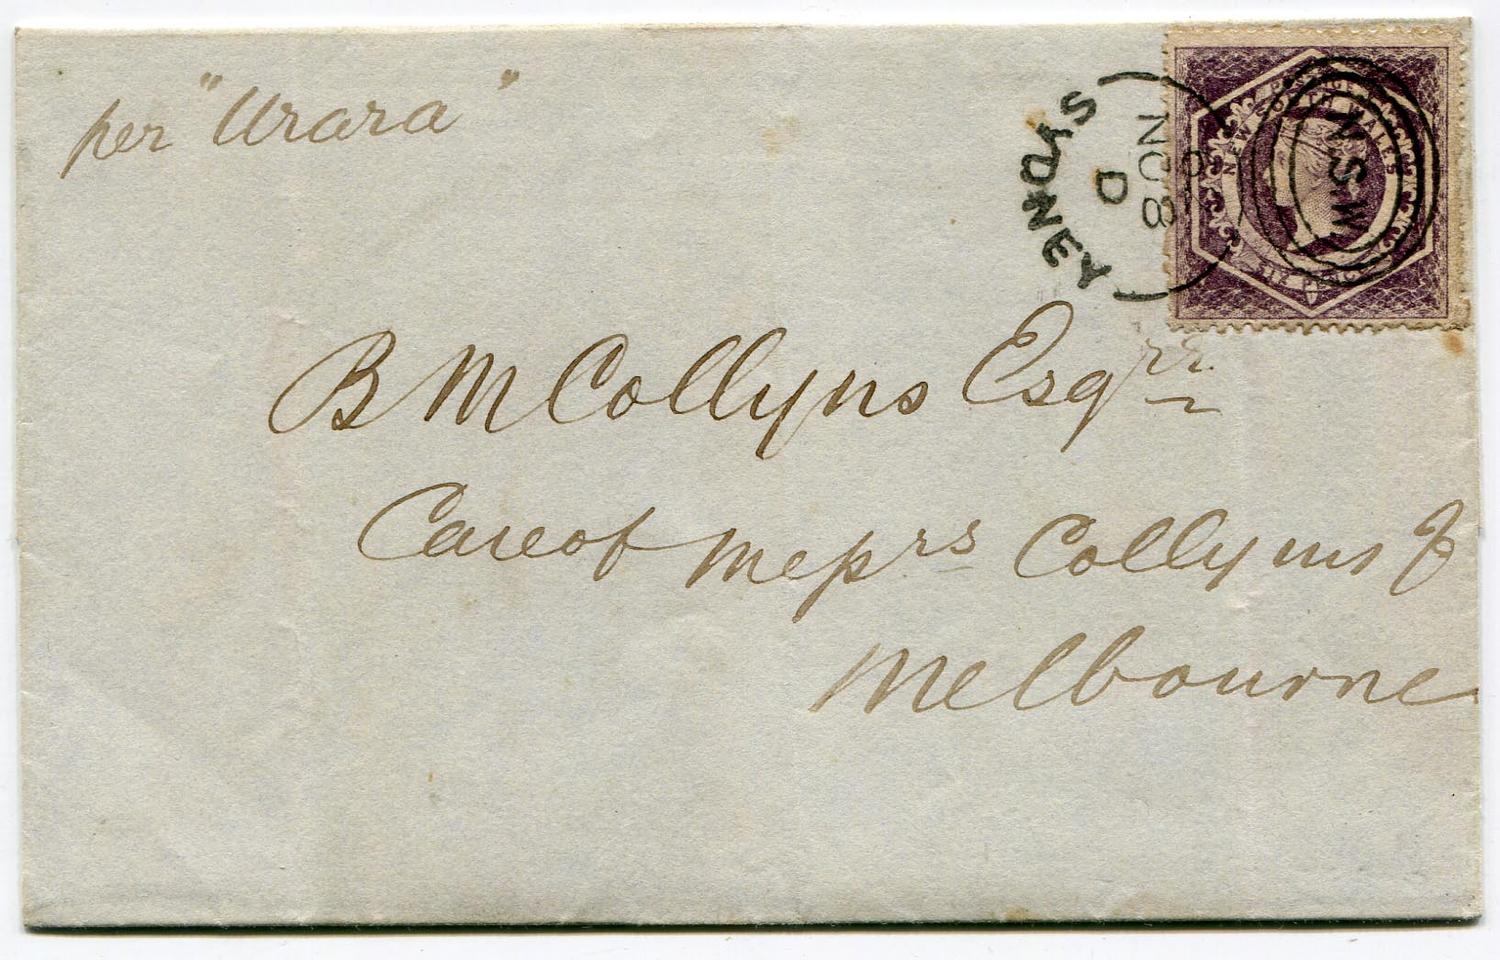 per "Urara"
SYDNEY
NO 8
D
NEW SOUTH WALES
POSTAGE
SIX PENCE
N.S.W
B M Collyns Esqre
Care of Messrs Collyns &
Melbourne